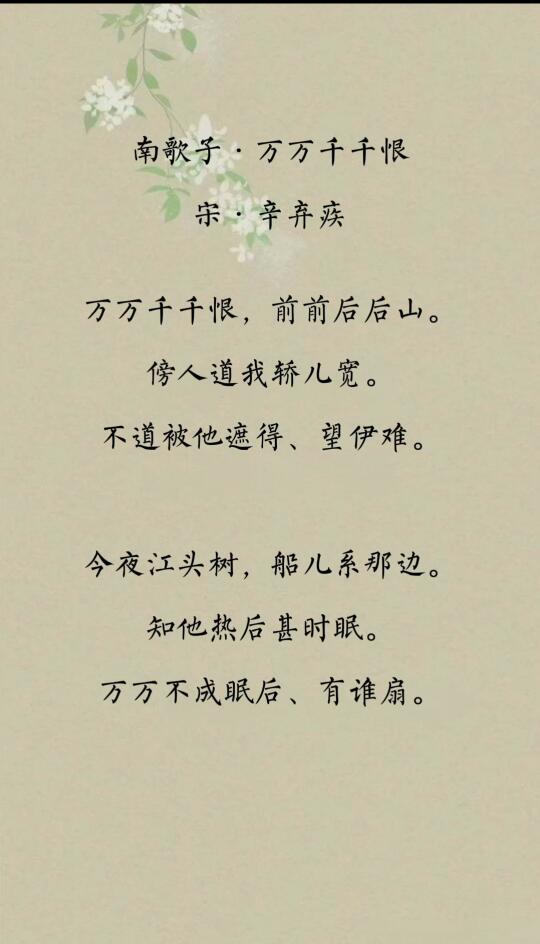 南歌子·万万千千恨
宋·辛弃疾
万万千千恨，前前后后山。
傍人道我轿儿宽。
不道被他遮得、望伊难。
今夜江头树，船儿系那边。
知他热后甚时眠。
万万不成眠后、有谁扇。